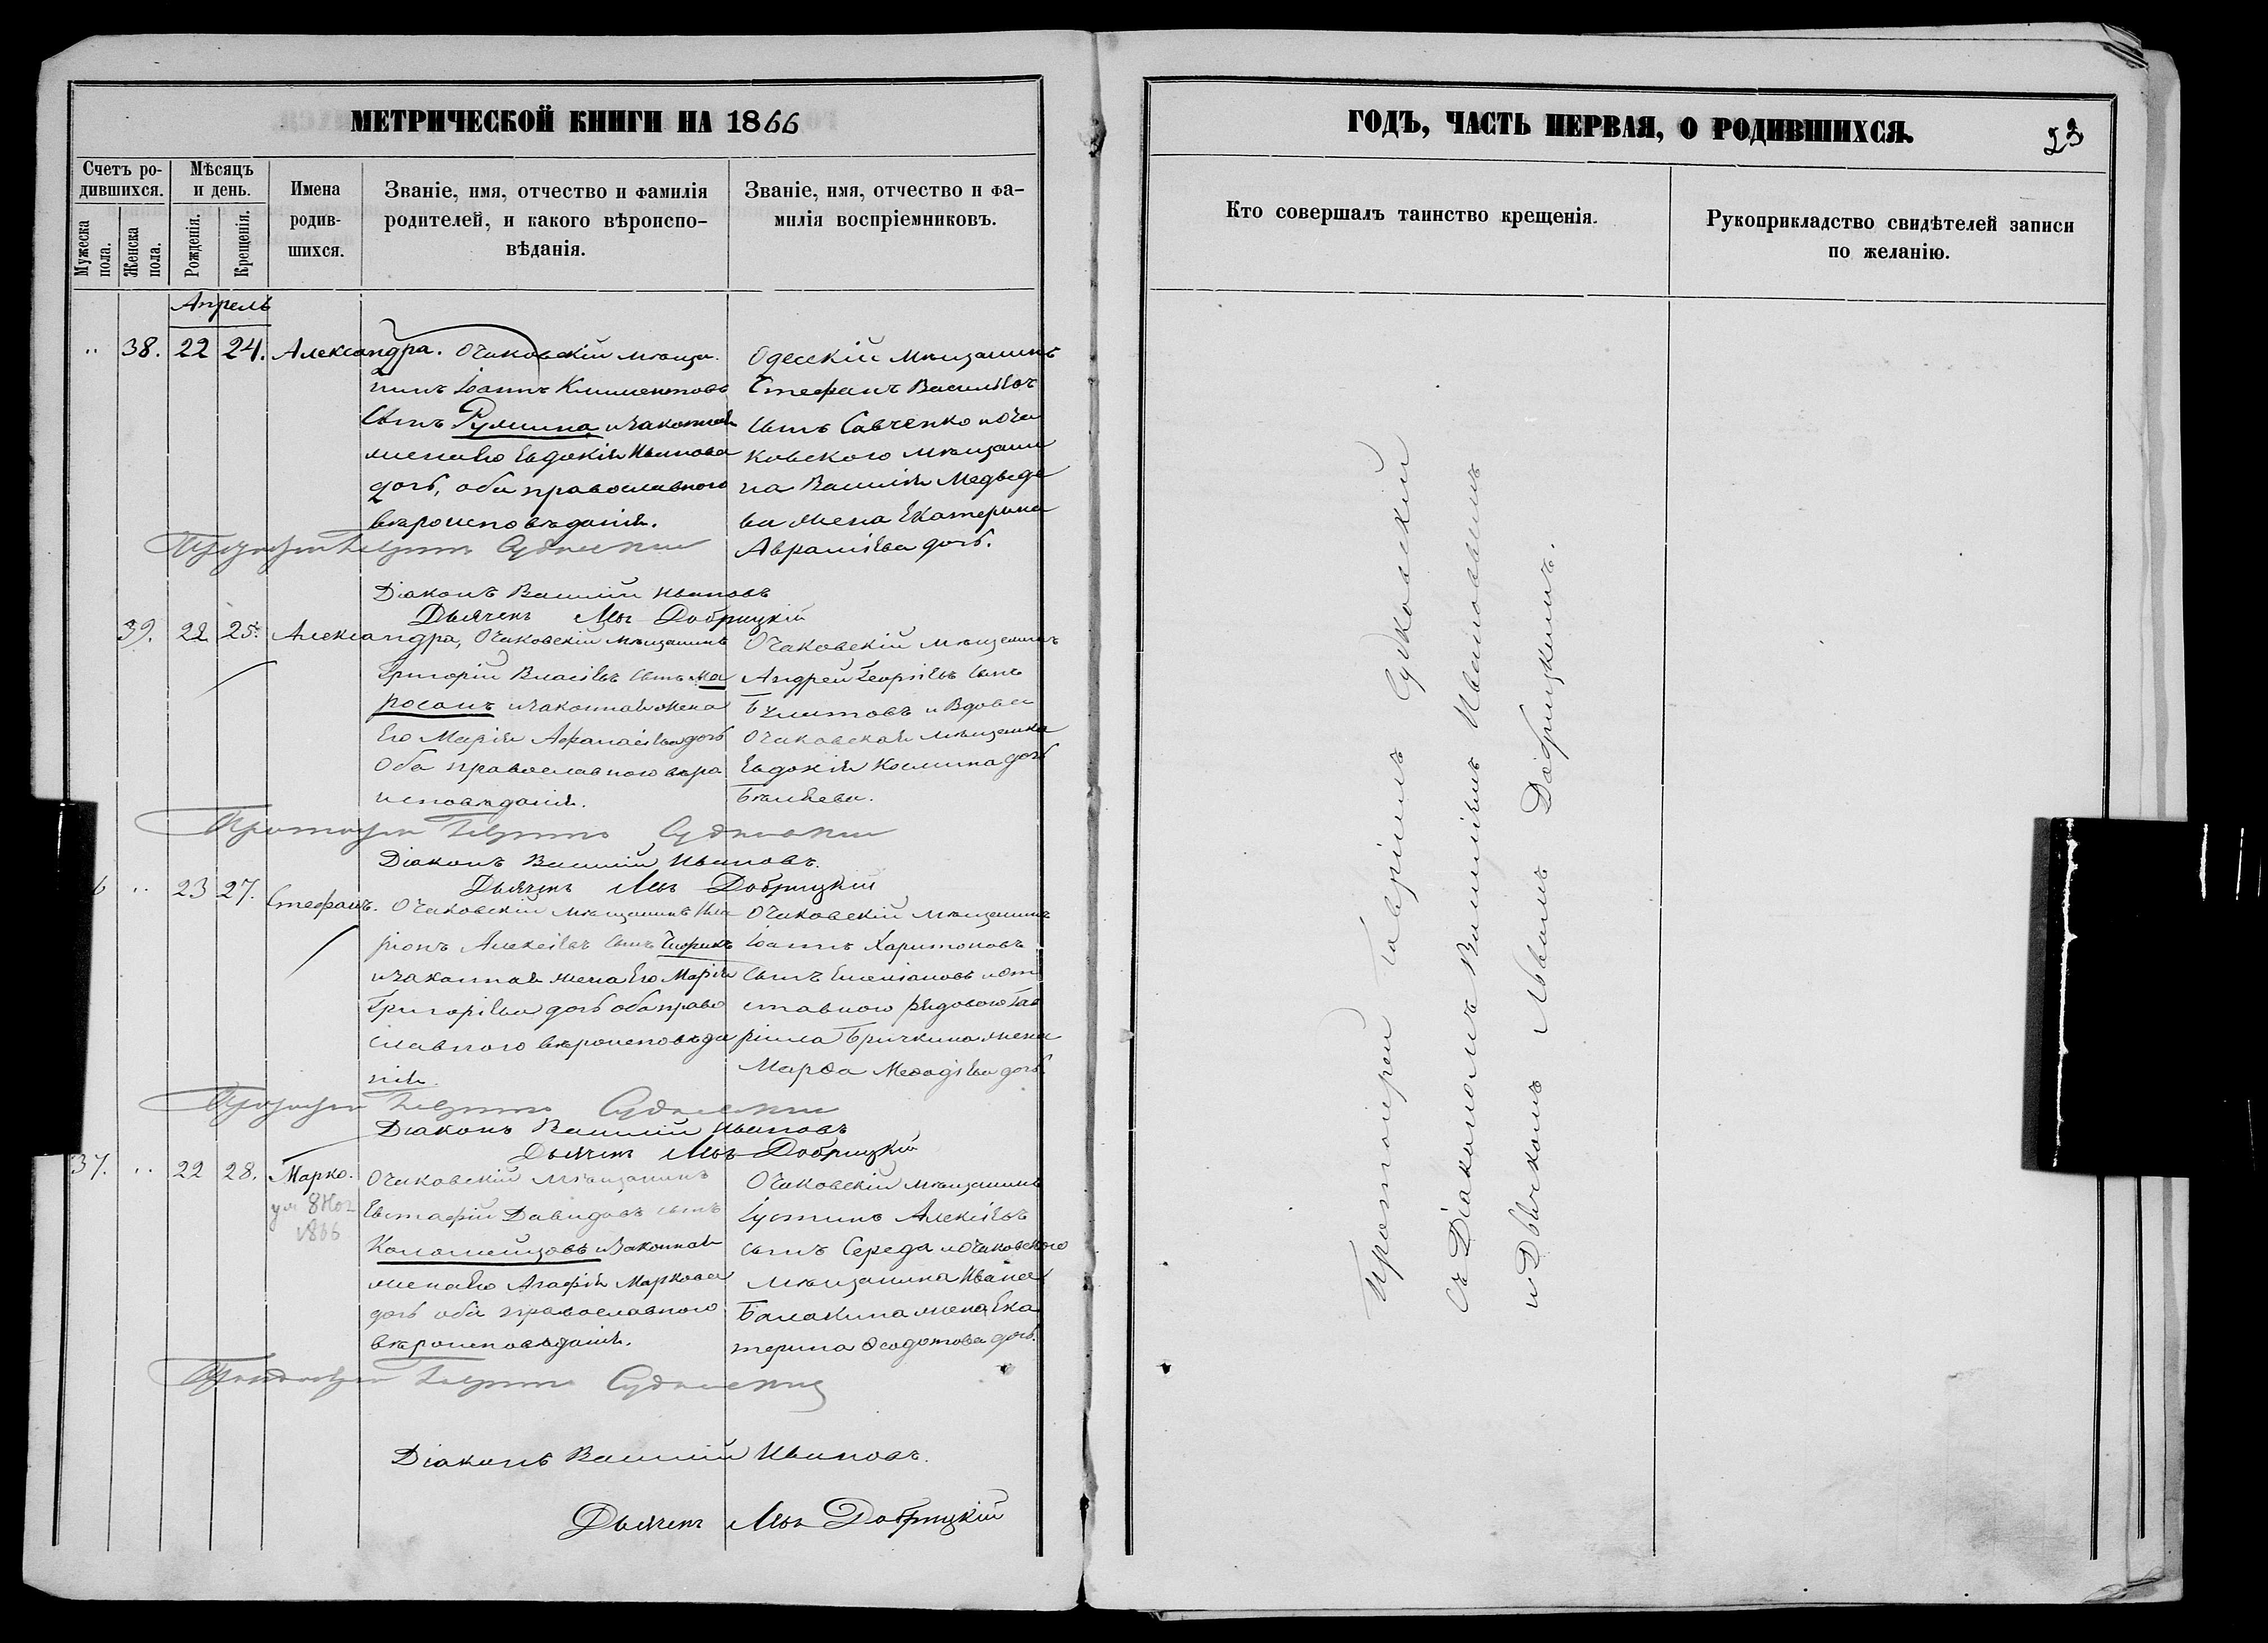 МЕТРИЧЕСКОЙ КНИГИ НА 1866
Счетъ ро-
дившихся.
Мужеска пола.
Женска пола.
Мѣсяцъ
и день.
Рожденія.
Крещенія.
Имена
родив-
шихся.
Званіе, имя, отчество и фамилія
родителей, и какого вѣроиспо-
вѣданія.
Званіе, имя, отчество и фа-
милія воспріемниковъ.
Апрель
„ 38. 22 24. Александра.
Очаковскій мѣща
нинъ Іоаннъ Климентовъ
сынъ Румина и законная
жена его Евдокія Иванова
дочь, оба православного
вѣроисповѣданія.
Одесскій мѣщанинъ
Стефанъ Васильевъ
сынъ Савченко и Оча
ковского мѣщани
на Василія Медведе
ва жена Екатерина
Авраміева дочь.
Протоіерей Гавріилъ Судковскій
Діаконъ Василій Ивановъ
Дьячекъ Левъ Добрицкій
39. 22 25. Александра,
Очаковскій мѣщанинъ
Григорій Власіевъ сынъ Ма
росанъ и законная жена
его Марія Афанасіева дочь
оба православного вѣро
исповѣданія.
Очаковскій мѣщанинъ
Андрей Георгіевъ сынъ
и вдова
Очаковская мѣщанка
Евдокія Космина дочь
Протоіерей Гавріилъ Судковскій
Діаконъ Василій Ивановъ.
Дьячекъ Левъ Добрицкій
6 „ 23 27. Стефанъ.
Очаковскій мѣщанинъ Ила
ріонъ Алексіевъ сынъ
и законная жена его Марія
Григоріева дочь оба право
славного вѣроисповѣда
нія.
Очаковскій мѣщанинъ
Іоаннъ Харитоновъ
сынъ Емеліановъ и от
ставного рядового Гав
ріила Бричкина жена
Марѳа Меѳодіева дочь.
Протоіерей Гавріилъ Судковскій
Діаконъ Василій Ивановъ
Дьячекъ Левъ Добрицкій
37. „ 22 28. Марко.
ум 8 Ноя
1866
Очаковскій мѣщанинъ
Евстафій Давидовъ сынъ
Коломейцовъ и законная
жена его Агафія Маркова
дочь оба православного
вѣроисповѣданія.
Очаковскій мѣщанинъ
Іустинъ Алексіевъ
сынъ Середа и Очаковского
мѣщанина Ивана
Балакина жена Ека
терина Ѳеодотова дочь.
Протоіерей Гавріилъ Судковскій
Діаконъ Василій Ивановъ.
Дьячекъ Левъ Добрицкій
ГОДЪ, ЧАСТЬ ПЕРВАЯ, О РОДИВШИХСЯ.
23
Кто совершалъ таинство крещенія.
Рукоприкладство свидѣтелей записи
по желанію.
Протоіерей Гавріилъ Судковскій
съ Діакономъ Василіемъ Ивановымъ
и Дьячкомъ Львомъ Добрицкимъ.